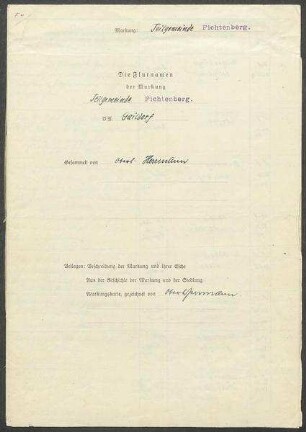 Markung: Teilgemeinde Fichtenberg.
Die Flurnamen
der Markung
Teilgemeinde Fichtenberg.
OA Gaildorf
Gesammelt von Oberl. Herrmann
Beilagen: Beschreibung der Markung und ihrer Teile
Aus der Geschichte der Markung und der Siedlung
Markungskarte, gezeichnet von Oberl. Herrmann